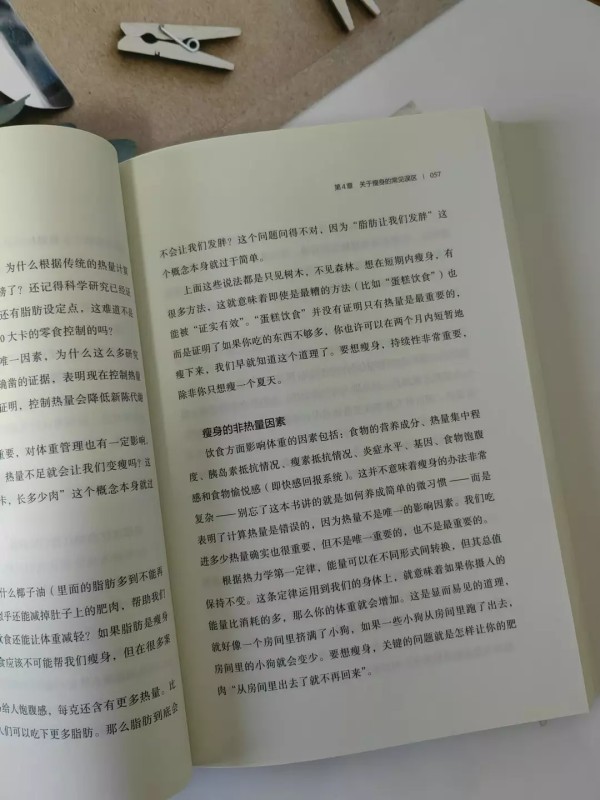 为什么根据传统的热量计算
磅了？还记得科学研究已经证
还有脂肪设定点，这难道不是
0大卡的零食控制的吗？
唯一因素，为什么这么多研究
确凿的证据，表明现在控制热量
证明，控制热量会降低新陈代谢
重要，对体重管理也有一定影响，
热量不足就会让我们变瘦吗？这
卡，长多少肉”这个概念本身就过
什么椰子油（里面的脂肪多到不能再
似乎还能减掉肚子上的肥肉、帮助我们
饮食还能让体重减轻？如果脂肪是瘦身
食应该不可能帮我们瘦身，但在很多案
给人饱腹感，每克还含有更多热量。比
人们可以吃下更多脂肪。那么脂肪到底会
第4章 关于瘦身的常见误区 | 057
不会让我们发胖？这个问题问得不对，因为“脂肪让我们发胖”这
个概念本身就过于简单。
上面这些说法都是只见树木，不见森林。想在短期内瘦身，有
很多方法，这就意味着即使是最糟的方法（比如“蛋糕饮食”）也
能被“证实有效”。“蛋糕饮食”并没有证明只有热量是最重要的，
而是证明了如果你吃的东西不够多，你也许可以在两个月内短暂地
瘦下来，我们早就知道这个道理了。要想瘦身，持续性非常重要，
除非你只想瘦一个夏天。
瘦身的非热量因素
饮食方面影响体重的因素包括：食物的营养成分、热量集中程
度、胰岛素抵抗情况、瘦素抵抗情况、炎症水平、基因、食物饱腹
感和食物愉悦感（即快感回报系统）。这并不意味着瘦身的办法非常
复杂——别忘了这本书讲的就是如何养成简单的微习惯——而是
表明了计算热量是错误的，因为热量不是唯一的影响因素。我们吃
进多少热量确实也很重要，但不是唯一重要的，也不是最重要的。
根据热力学第一定律，能量可以在不同形式间转换，但其总值
保持不变。这条定律运用到我们的身体上，就意味着如果你摄入的
能量比消耗的多，那么你的体重就会增加。这是显而易见的道理，
就好像一个房间里挤满了小狗，如果一些小狗从房间里跑了出去，
房间里的小狗就会变少。要想瘦身，关键的问题就是怎样让你的肥
肉“从房间里出去了就不再回来”。